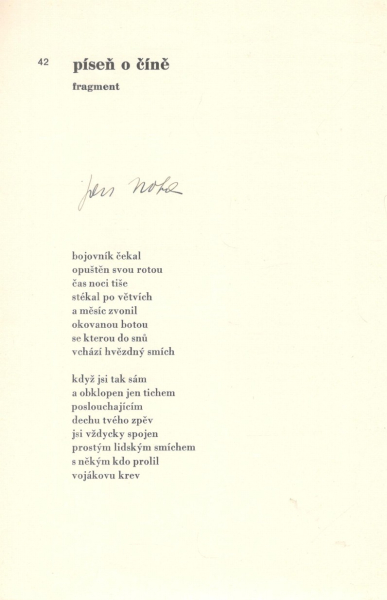 42
píseň o číně
fragment
Jan Noha
bojovník čekal
opuštěn svou rotou
čas noci tiše
stékal po větvích
a měsíc zvonil
okovanou botou
se kterou do snů
vchází hvězdný smích
když jsi tak sám
a obklopen jen tichem
poslouchajícím
dechu tvého zpěv
jsi vždycky spojen
prostým lidským smíchem
s někým kdo prolil
vojákovu krev